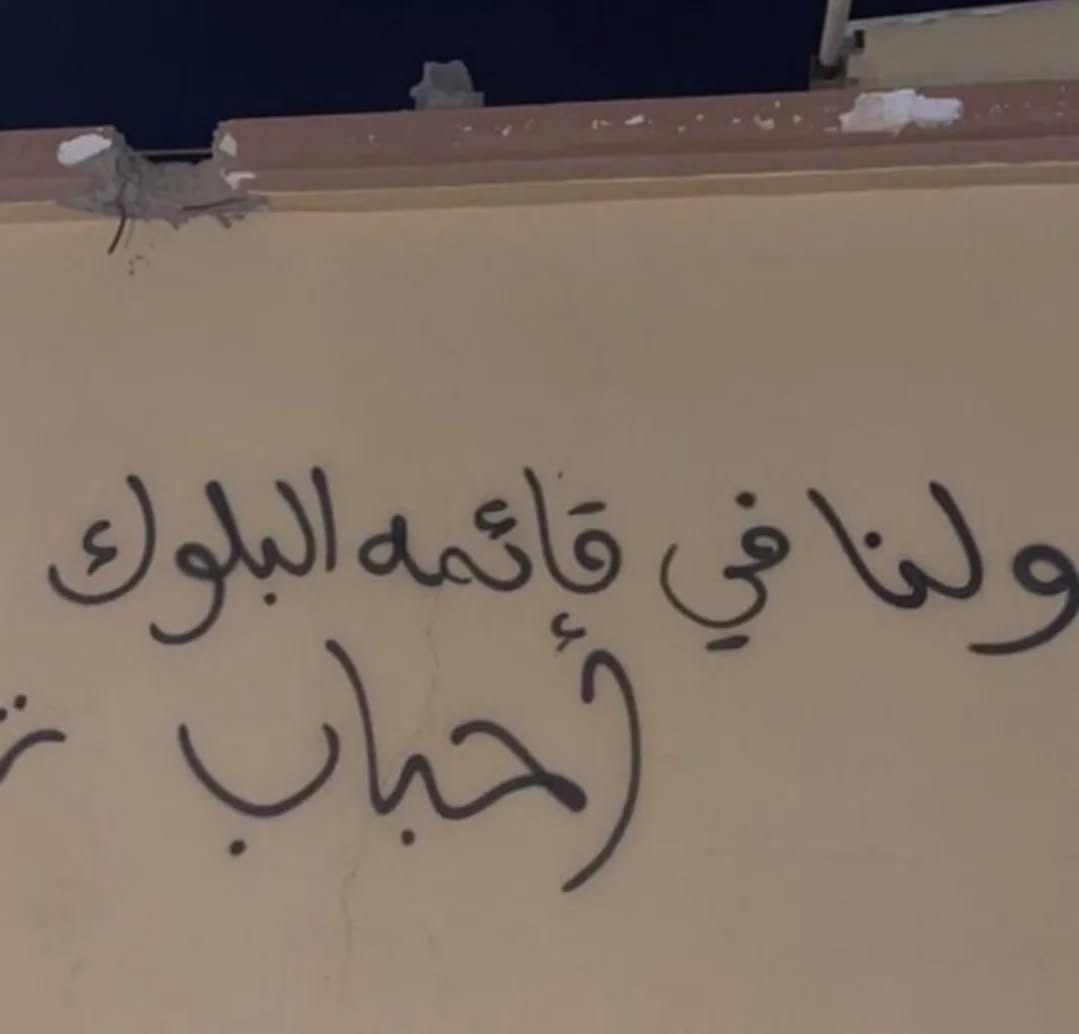 ولنا في قائمه البلوك
أحباب